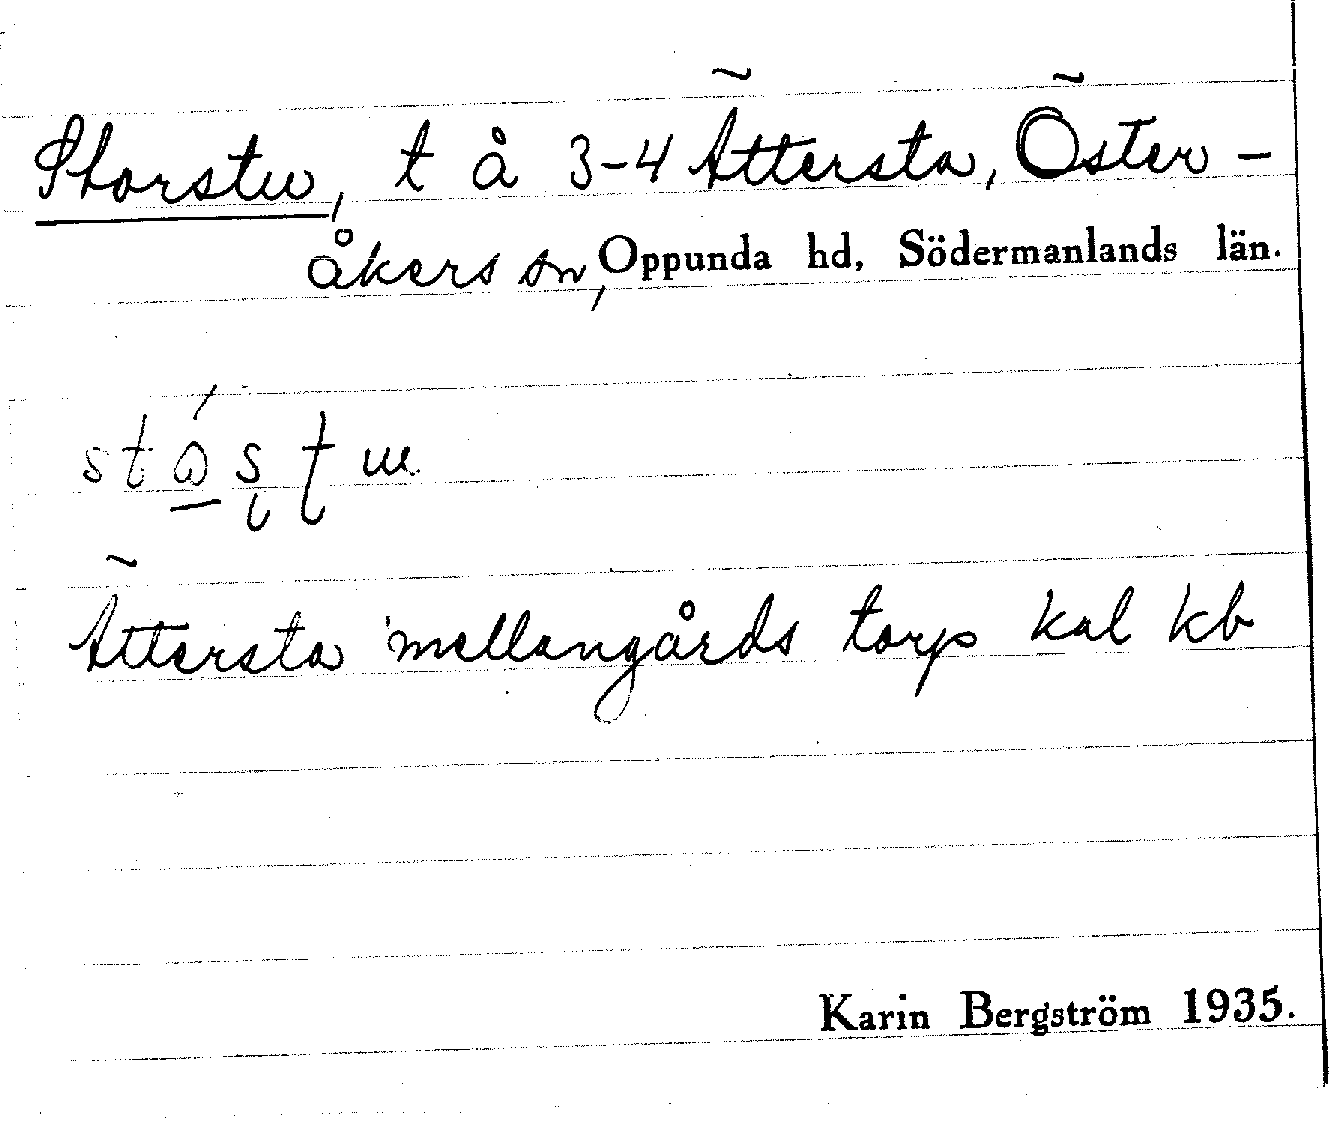 Storstu, t å 3-4 Ättersta, Öster-
åkers sn, Oppunda hd, Södermanlands län.
Ättersta mellangårds torp kal kb
Karin Bergström 1935.